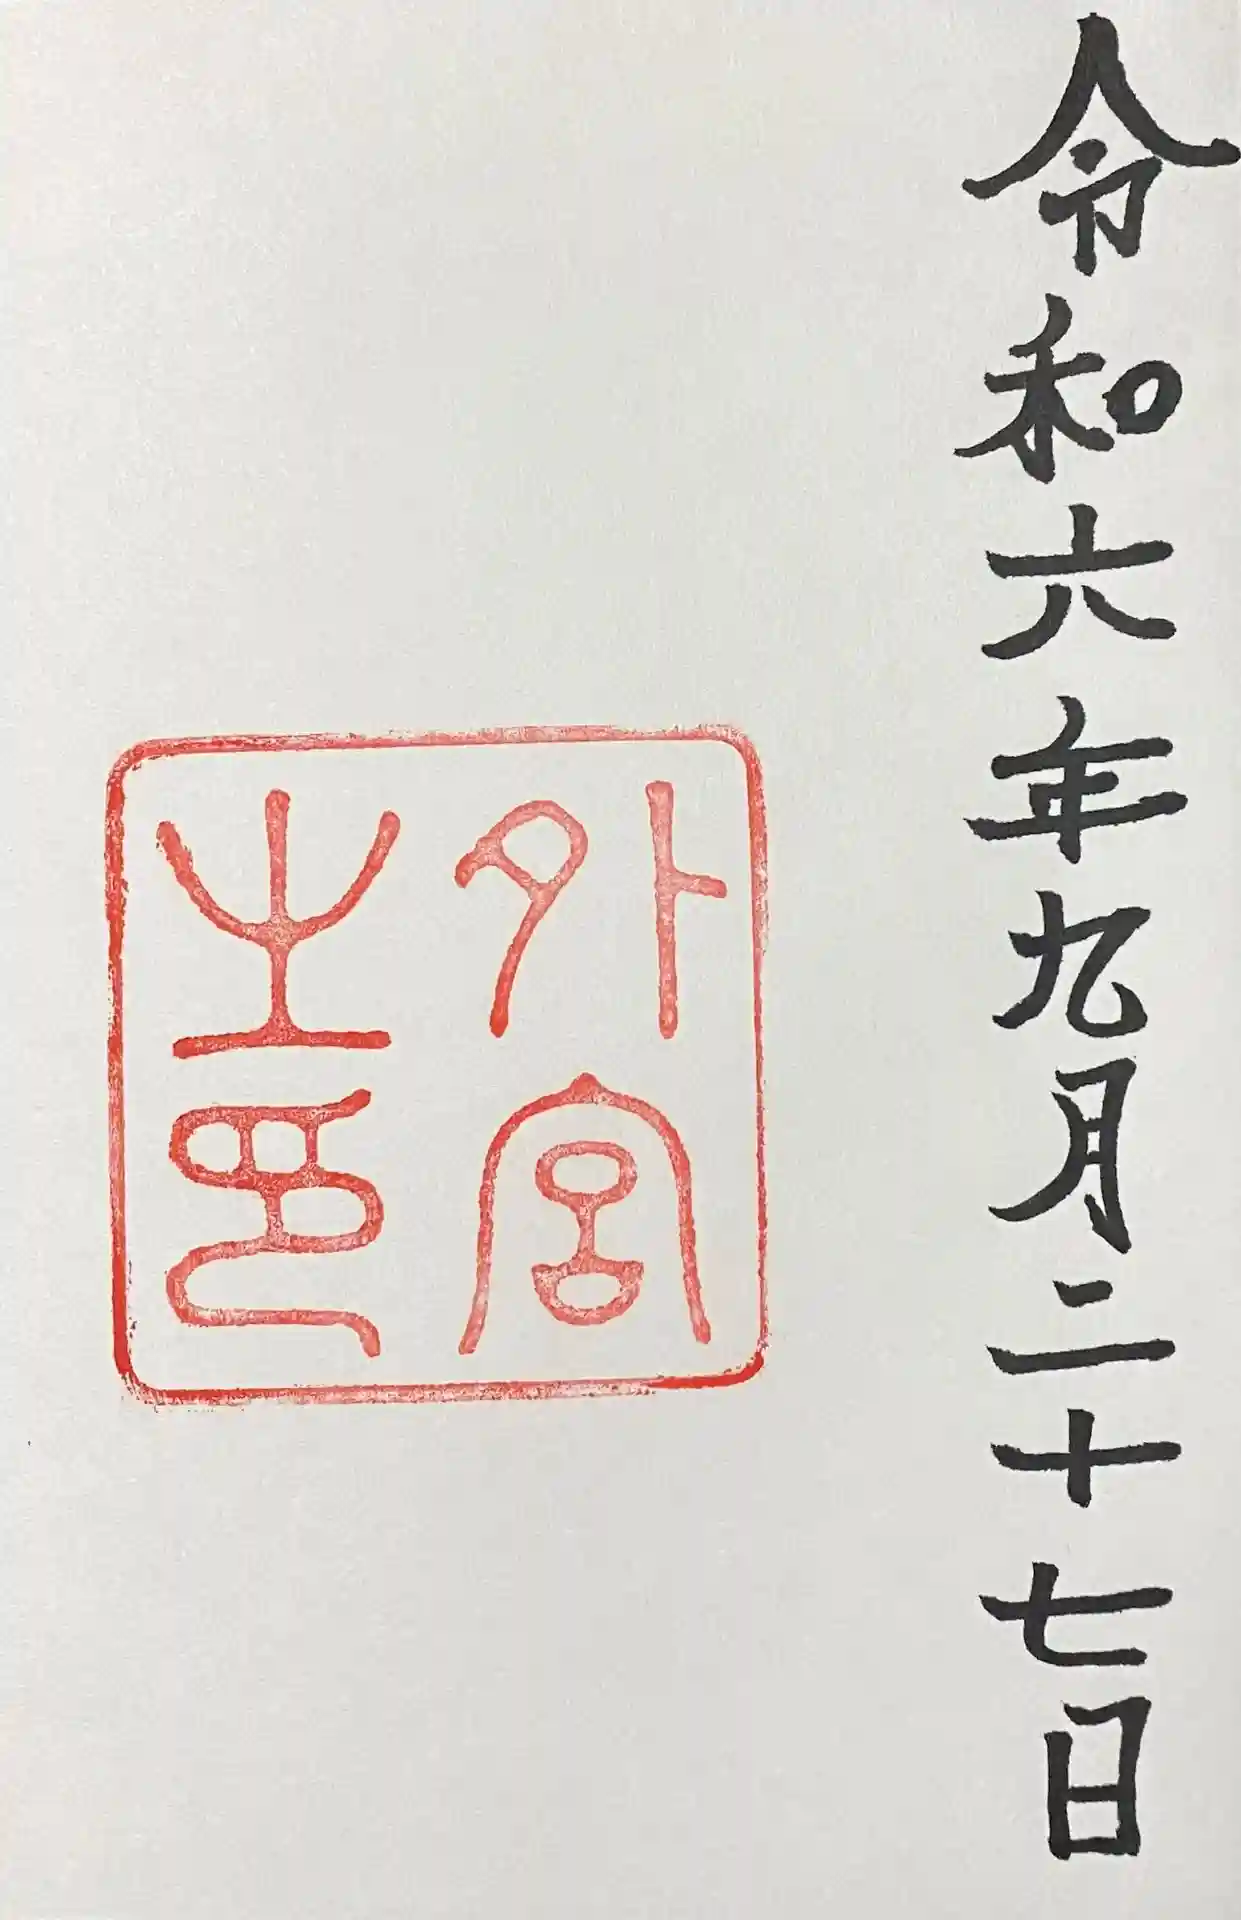 令和六年九月二十七日
外宮
之印